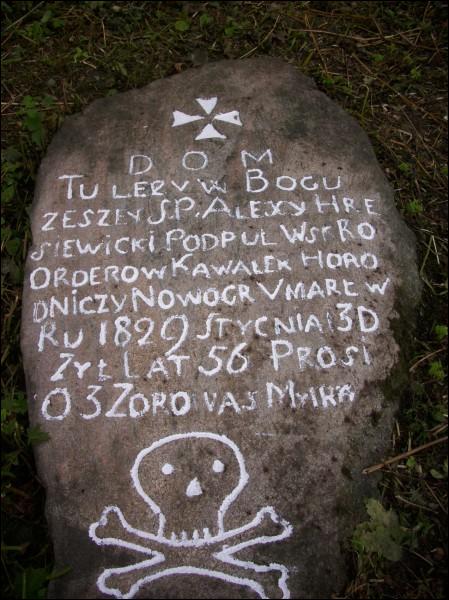 D O M
TU LEZY W BOGU
ZESZŁY S.P. ALEXY HRE
SIEWICKI PODPUL WSC RO
ORDEROW KAWALEX HORO
DNICZY NOWOGR UMARŁ W
RU 1829 STYCNIA 13 D
ZYŁ LAT 56 PROSI
O 3 ZDRO WAS MYIRA